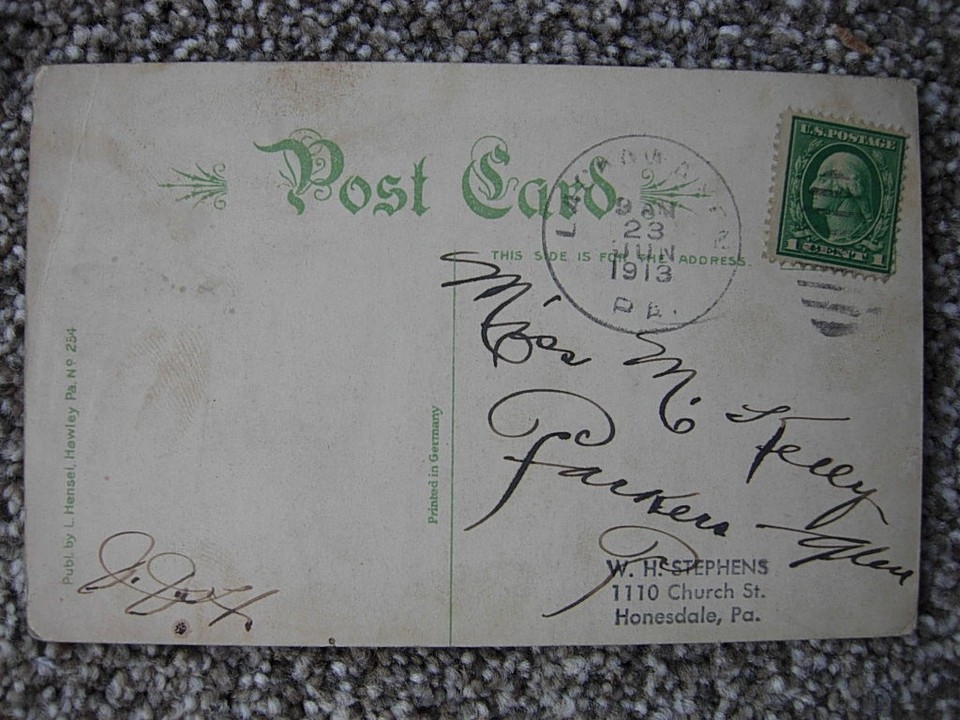 Post Card
THIS SIDE IS FOR THE ADDRESS.
U.S. POSTAGE
1 CENT 1
LACKAWAXEN
9 AM
23
JUN
1913
PA.
Publ. by L. Hensel, Hawley Pa. No 254
Printed in Germany
Miss M Kelly
Parkers Glen
Pa
W. H. STEPHENS
1110 Church St.
Honesdale, Pa.